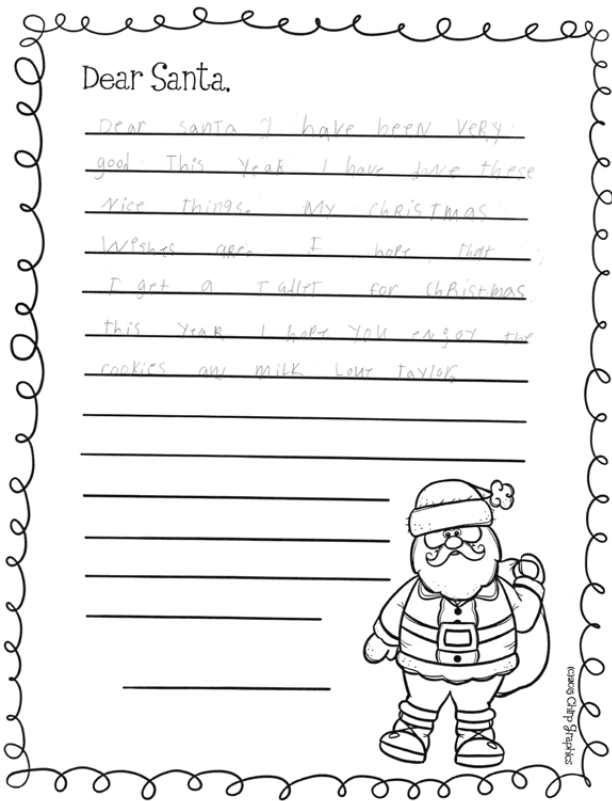 Dear Santa,
Dear santa I have been VeRy
good. This YeaR I have done these
Nice things. My ChRisTmas
Wishes are. I hope that
I get a TableT for ChRistmas
this YeaR. I hope YOU enjoy the
cookies and milk Love Taylor.
(c)2015 Chirp Graphics